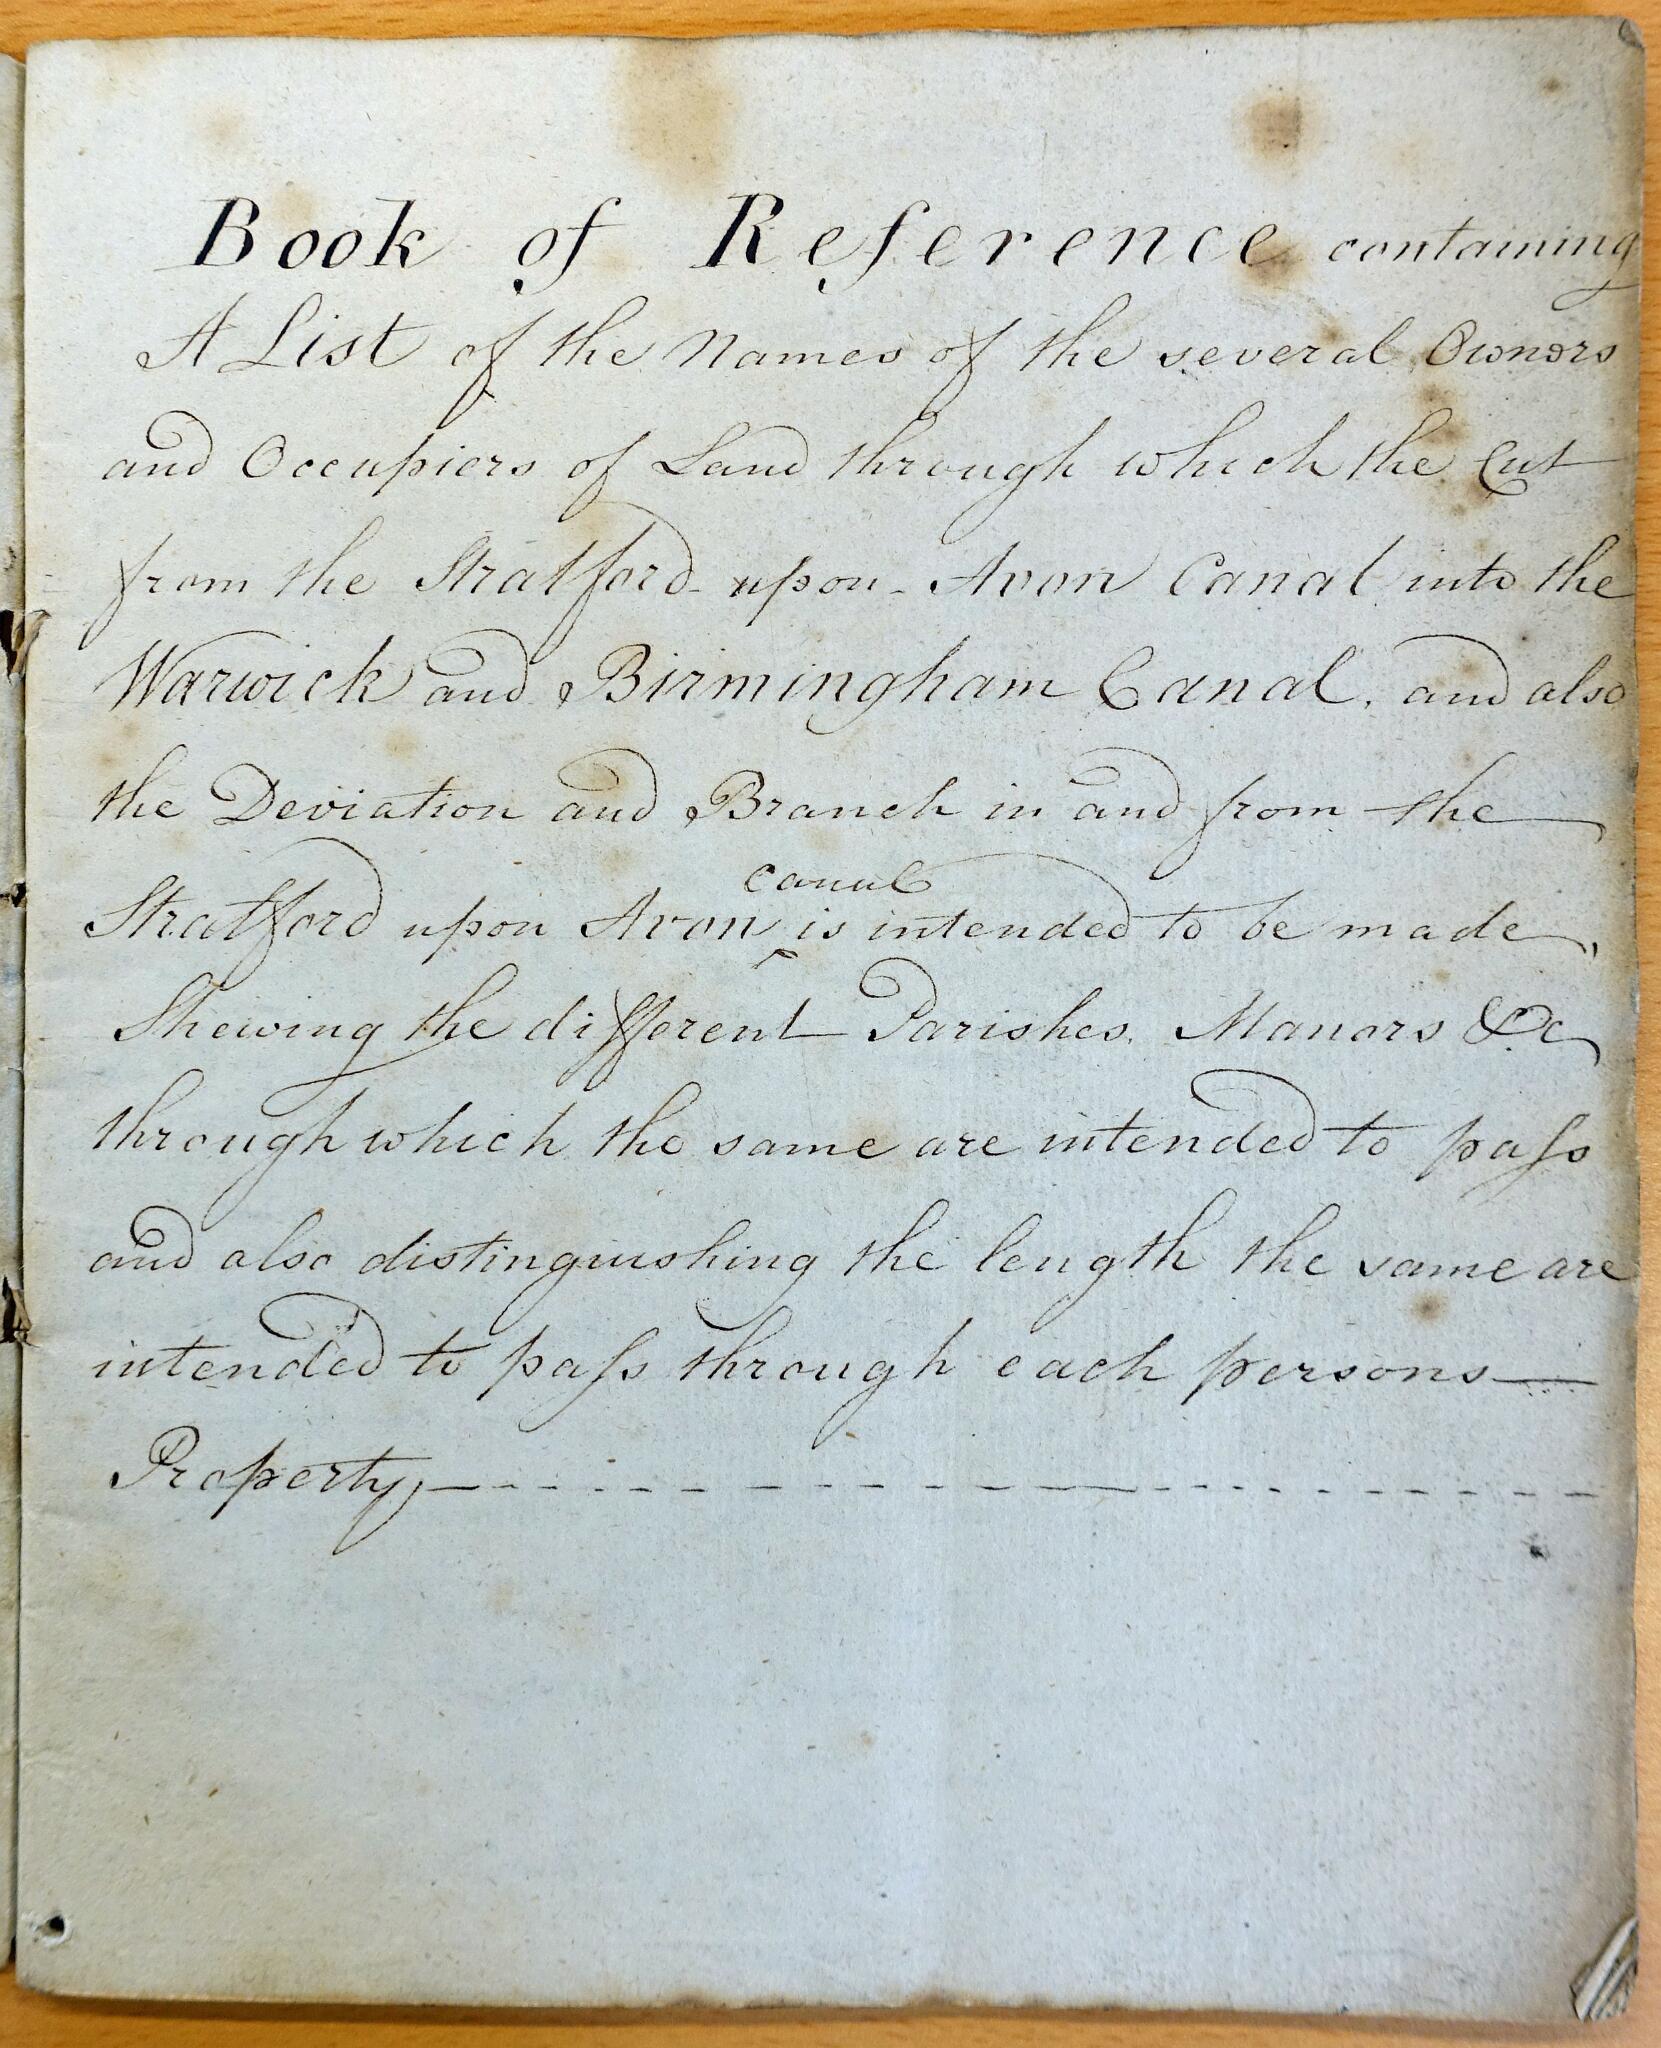 Book of Reference containing
A List of the Names of the several Owners
and Occupiers of Land through which the Cut
from the Stratford-upon-Avon Canal into the
Warwick and Birmingham Canal, and also
the Deviation and Branch in and from the
canal
Stratford upon Avon ^ is intended to be made,
Shewing the different Parishes, Manors &c
through which the same are intended to paſs
and also distinguishing the length the same are
intended to paſs through each persons
Property,